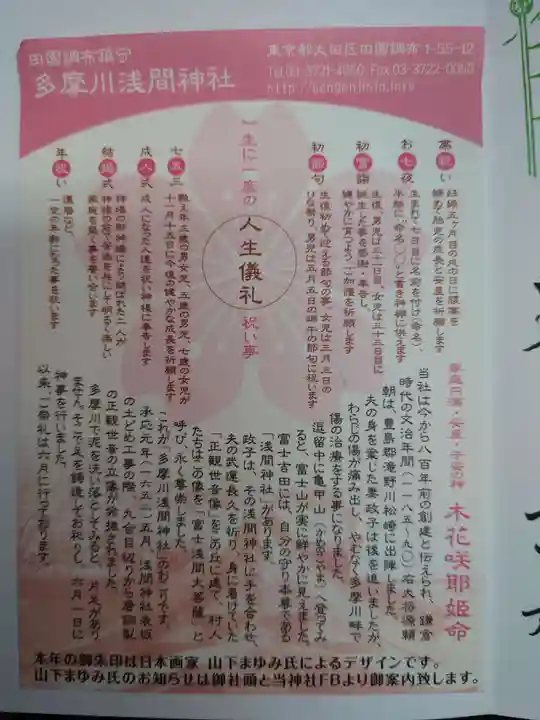 田園調布鎮守
多摩川浅間神社
東京都大田区田園調布1-55-12
Tel.03-3721-4050 Fax.03-3722-0050
一生に一度の
人生儀礼
祝い事
帯祝い
妊婦五ヶ月目の戌の日に腹帯を
お七夜
生まれて七日目に名前を付け(命名)、
半紙に、命名「〇〇」と書き神棚に供えます
初宮詣
生後、男児は三十一日目、女児は三十三日目に
誕生した事を感謝・奉告し、
健やかに育つようご加護を祈願します
初節句
生後初めて迎える節句の事、女児は三月三日の
ひな祭り、男児は五月五日の端午の節句に祝います
七五三
数え年三歳の男女児、五歳の男児、七歳の女児が
十一月十五日に今後の健やかな成長を祈願します
成人式
成人になった人達を祝い神様に奉告します
結婚式
神様の御神縁により結ばれた二人が
年祝い
還暦など、
一定の年齢に達した事を祝います
家庭円満・安産・子安の神
木花咲耶姫命
当社は今から八百年前の創建と伝えられ、鎌倉
時代の文治年間(一一八五〜九〇)右大将源頼
朝は、豊島郡滝野川松崎に出陣しました。
夫の身を案じた妻政子は後を追いましたが、
わらじの傷が痛み出し、やむなく多摩川畔で
傷の治療をする事になりました。
逗留中に亀甲山(かめのこやま)へ登ってみ
ると、富士山が実に鮮やかに見えました。
富士吉田には、自分の守り本尊である
「浅間神社」があります。
政子は、その浅間神社に手を合わせ、
夫の武運長久を祈り、身に着けていた
「正観世音像」をこの丘に建て、村人
たちはこの像を「富士浅間大菩薩」と
呼び、永く尊崇しました。
これが多摩川浅間神社のおこりです。
承応元年(一六五二)五月、浅間神社表坂
の土どめ工事の際、九合目辺りから唐銅製
の正観世音の立像が発掘されました。
多摩川で泥を洗い落としてみると、片足があり
ません。そこで足を鋳造してお祀りし、六月一日に
神事を行いました。
以来、ご祭礼は六月に行っております。
本年の御朱印は日本画家 山下まゆみ氏によるデザインです。
山下まゆみ氏のお知らせは御社頭と当神社FBより御案内致します。